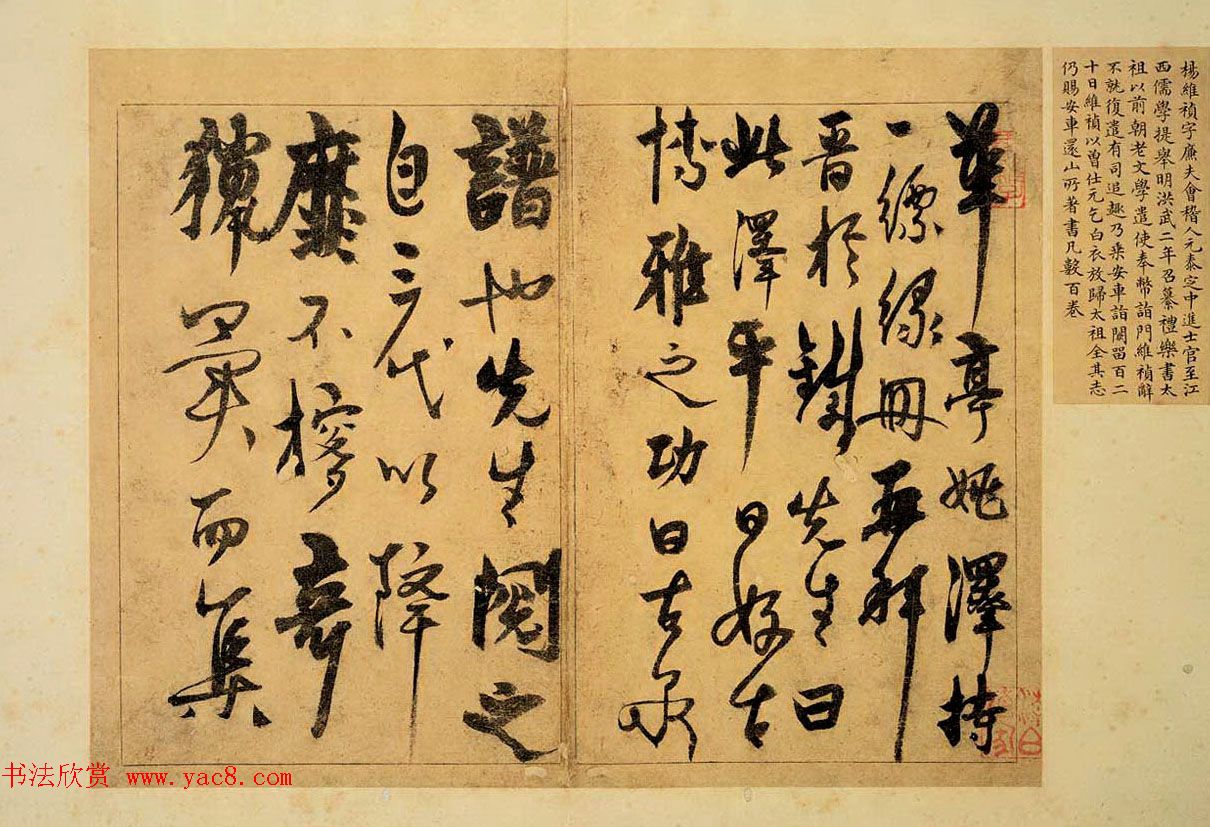 楊維禎字廉夫會稽人元泰定中進士官至江
西儒學提舉明洪武二年召纂禮樂書太
祖以前朝老文學遣使奉幣詣門維禎辭
不就復遣有司追趣乃乘安車詣闕留百二
十日維禎以曾仕元乞白衣放歸太祖全其志
仍賜安車還山所著書凡數百卷
華亭姚澤持
一縹緣冊再拜
晉於銕先生曰
此澤平日好古
博雅之功曰古泉
譜也先生閱之
自三代以降
靡不摉奇
獵異而集
书法欣赏 www.yac8.com